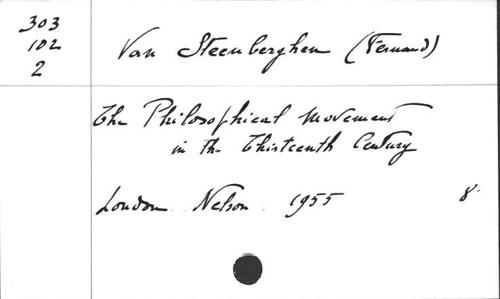 303
102
2
Van Steenberghen (Fernand)
The Philosophical Movement
in the Thirteenth Century
London Nelson 1955 8°